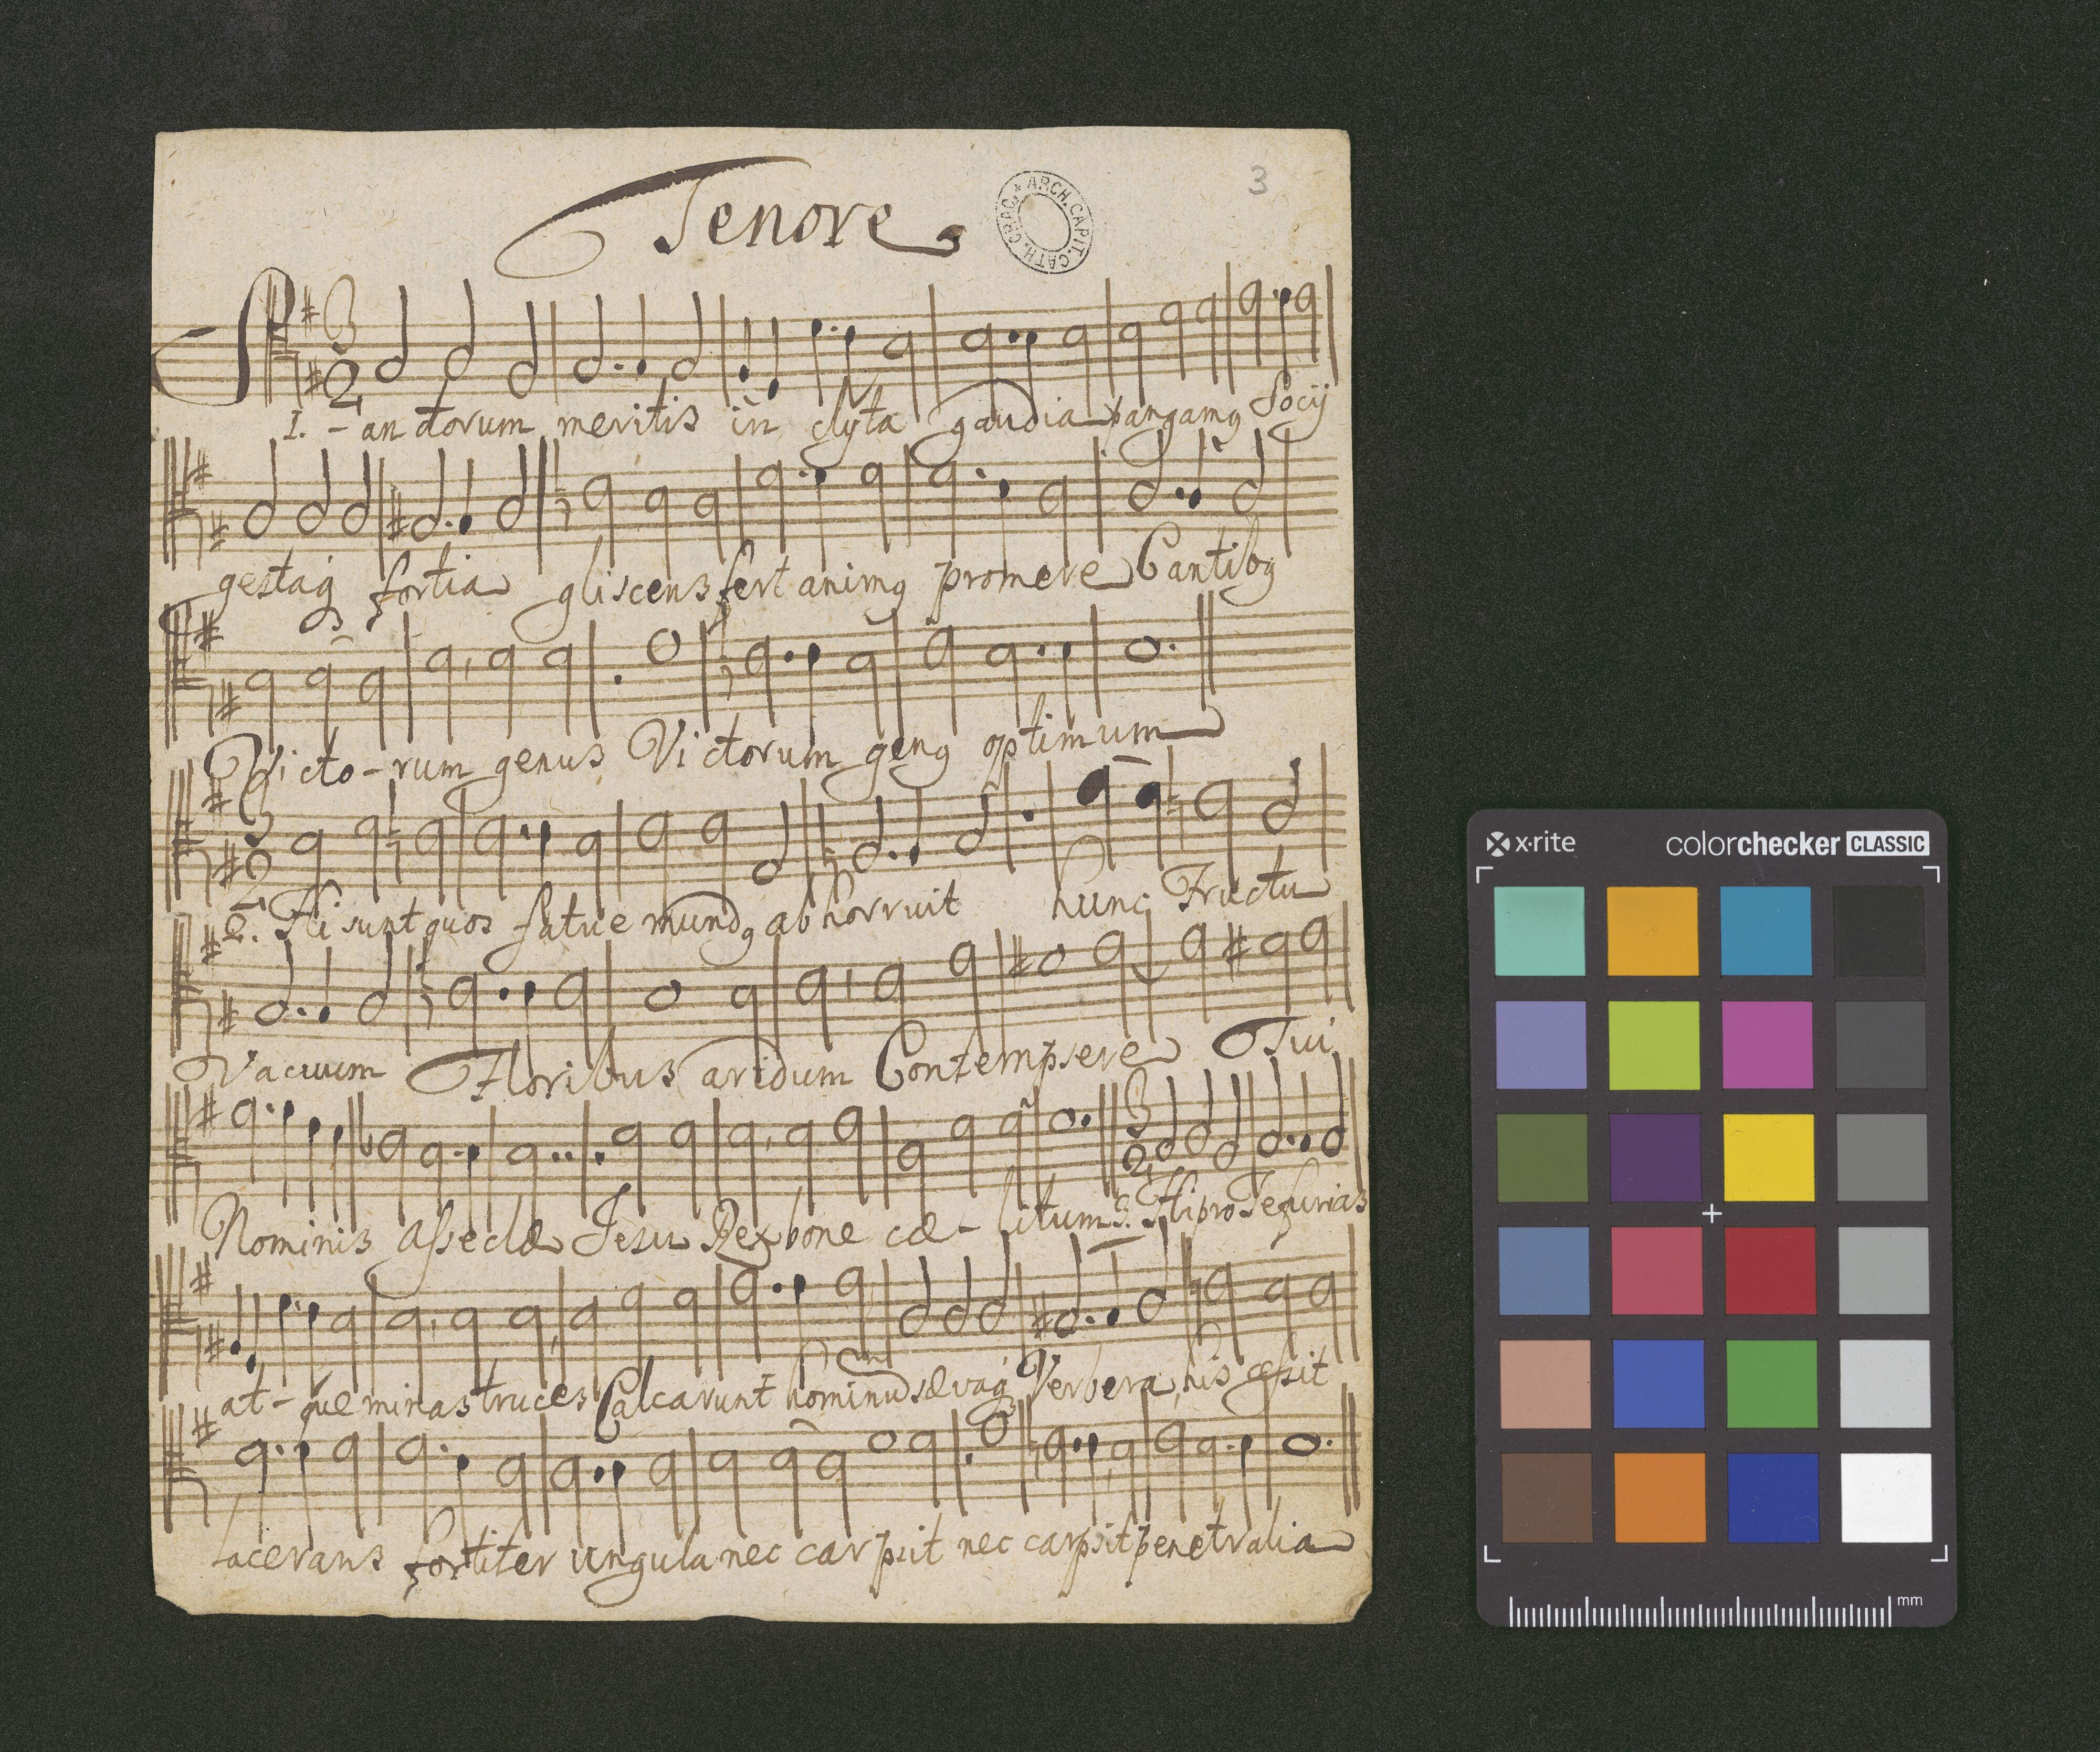 Tenore
ARCH. CAPIT. CATH. CRAC.
3
1. - anctorum meritis in clyta gaudia pangamꝰ Socij
gestaq fortia gliscens fert animꝰ promere Cantibꝰ
Victo - rum genus Victorum genꝰ optimum
2. Hi sunt quos fatue mundꝰ abhorruit hunc Fructu
Vacuum Floribus aridum Contempsere Tui
Nominis asseclæ Jesu Rex bone cæ - litum 3. Hi pro Te furias
at - que minas truces Calcarunt hominū sævaq Verbera, his cessit
lacerans fortiter ungula nec carpsit nec carpsit penetralia
x·rite
colorchecker CLASSIC
mm